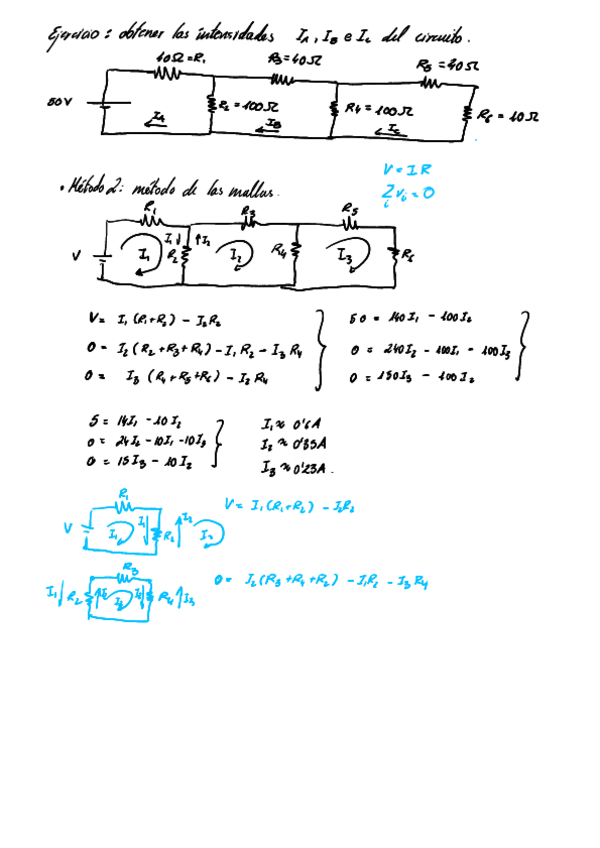 Ejercicio: obtener las intensidades IA, IB e IC del circuito.
40Ω=R1 R3=40Ω R5=40Ω
50V R2=100Ω R4=100Ω R6=10Ω
IA IB IC
V=IR
Σi Vi=0
• Método 2: método de las mallas.
R1 R3 R5
V I1 I1 R2 I2 I2 R4 I3 R6
V= I1(R1+R2) - I2R2
0= I2(R2+R3+R4) - I1R2 - I3R4
0= I3(R4+R5+R6) - I2R4
50 = 140I1 - 100I2
0 = 240I2 - 100I1 - 100I3
0 = 150I3 - 100I2
5 = 14I1 - 10I2
0 = 24I2 - 10I1 - 10I3
0 = 15I3 - 10I2
I1 ≈ 0'6A
I2 ≈ 0'35A
I3 ≈ 0'23A.
R1
V I1 I1 R2 I2 I2
V= I1(R1+R2) - I2R2
R3
I1 R2 I2 I2 I2 R4 I3
0= I2(R3+R4+R2) - I1R2 - I3R4